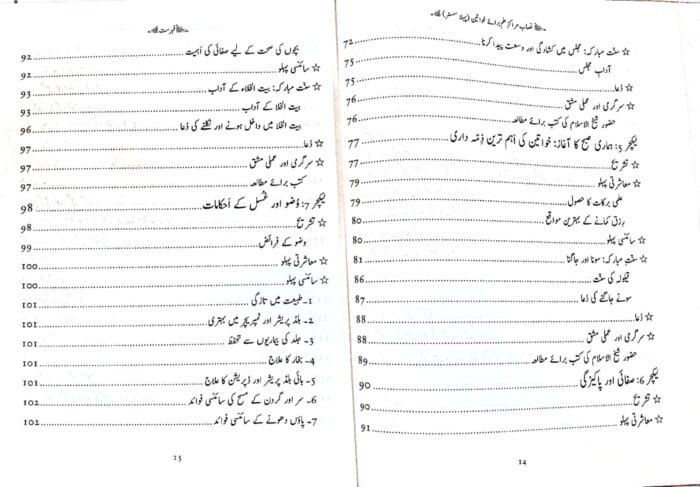 نصاب مراکزِ علم برائے خواتین (پہلا سمسٹر)
☆ سنتِ مبارکہ: مجلس میں کشادگی اور وسعت پیدا کرنا 72
آدابِ مجلس 75
☆ دُعا 75
☆ سرگرمی اور عملی مشق 76
حضور شیخ الاسلام کی کتب برائے مطالعہ 76
لیکچر 5: ہماری صبح کا آغاز: خواتین کی اہم ترین ذِمہ داری 77
☆ تشریح 77
☆ معاشرتی پہلو 79
علمی برکات کا حصول 79
رزق کمانے کے بہترین مواقع 80
☆ سائنسی پہلو 80
☆ سنتِ مبارکہ: سونا اور جاگنا 81
قیلولہ کی سنت 86
سونے جاگنے کی دُعا 87
☆ دُعا 88
☆ سرگرمی اور عملی مشق 88
حضور شیخ الاسلام کی کتب برائے مطالعہ 89
لیکچر 6: صفائی اور پاکیزگی 90
☆ تشریح 90
☆ معاشرتی پہلو 91
14
فہرست
بچوں کی صحت کے لیے صفائی کی اَہمیت 92
☆ سائنسی پہلو 92
☆ سنتِ مبارکہ: بیت الخلاء کے آداب 93
بیت الخلا کے آداب 93
بیت الخلا میں داخل ہونے اور نکلنے کی دُعا 96
☆ دُعا 97
☆ سرگرمی اور عملی مشق 97
کتب برائے مطالعہ 97
لیکچر 7: وُضو اور غسل کے اَحکامات 98
☆ تشریح 98
وضو کے فرائض 99
☆ معاشرتی پہلو 100
☆ سائنسی پہلو 100
1۔ طبیعت میں تازگی 101
2۔ بلڈ پریشر اور ٹمپریچر میں بہتری 101
3۔ جلد کی بیماریوں سے تحفظ 101
4۔ بخار کا علاج 101
5۔ ہائی بلڈ پریشر اور ڈپریشن کا علاج 101
6۔ سر اور گردن کے مسح کی سائنسی فوائد 102
7۔ پاؤں دھونے کے سائنسی فوائد 102
15